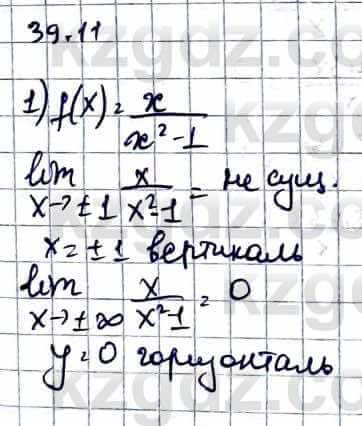 39.11
1) f(x) = x / x² - 1
lim x→±1 x / x²-1 = не сущ.
x = ±1 вертикаль
lim x→±∞ x / x²-1 = 0
y = 0 горизонталь
kzgdz.com